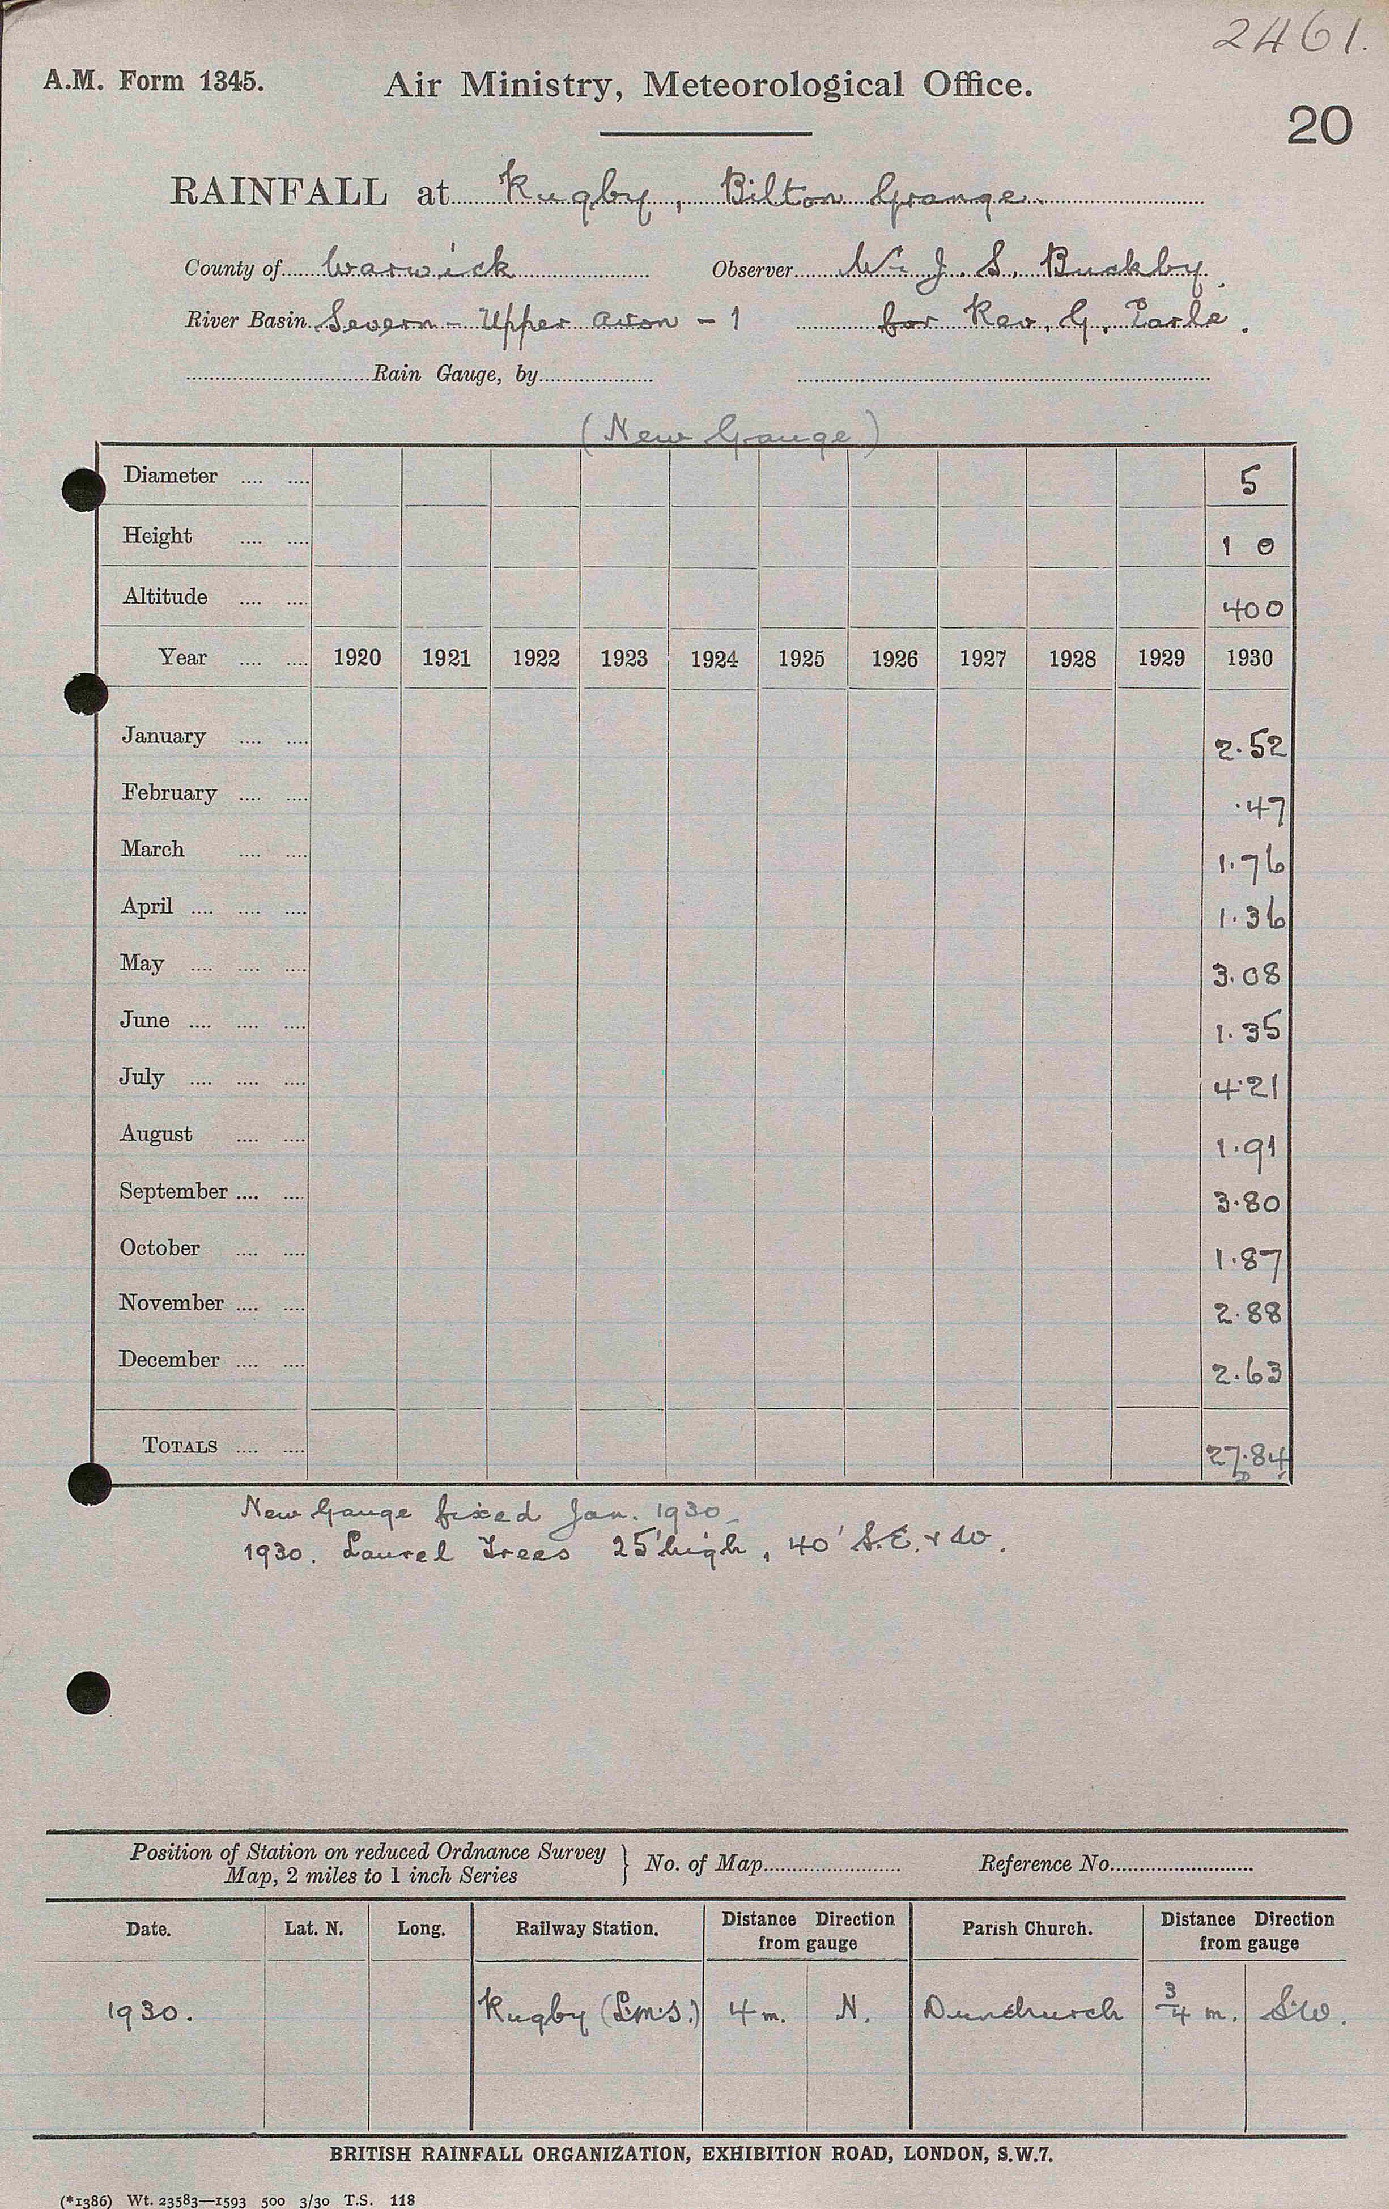 2461.
A.M. Form 1345. Air Ministry, Meteorological Office.
20
RAINFALL at Rugby, Bilton Grange.
County of Warwick Observer W. J. S. Buckby.
River Basin Severn - Upper Avon - 1 for Rev. G. Earle.
Rain Gauge, by
(New Gauge)
Diameter .... .... 5
Height .... .... 1 0
Altitude .... .... 400
Year .... .... 1920 1921 1922 1923 1924 1925 1926 1927 1928 1929 1930
January .... .... 2.52
February .... .... .47
March .... .... 1.76
April .... .... .... 1.36
May .... .... .... 3.08
June .... .... .... 1.35
July .... .... .... 4.21
August .... .... 1.91
September .... .... 3.80
October .... .... 1.87
November .... .... 2.88
December .... .... 2.63
TOTALS .... .... 27.84
New Gauge fixed Jan. 1930.
1930. Laurel Trees 25' high, 40' S.E. & W.
Position of Station on reduced Ordnance Survey Map, 2 miles to 1 inch Series } No. of Map Reference No.
Date. Lat. N. Long. Railway Station. Distance Direction from gauge Parish Church. Distance Direction from gauge
1930. Rugby (L.M.S.) 4 m. N. Dunchurch 3/4 m. S.W.
BRITISH RAINFALL ORGANIZATION, EXHIBITION ROAD, LONDON, S.W.7.
(*1386) Wt. 23583—1593 500 3/30 T.S. 118